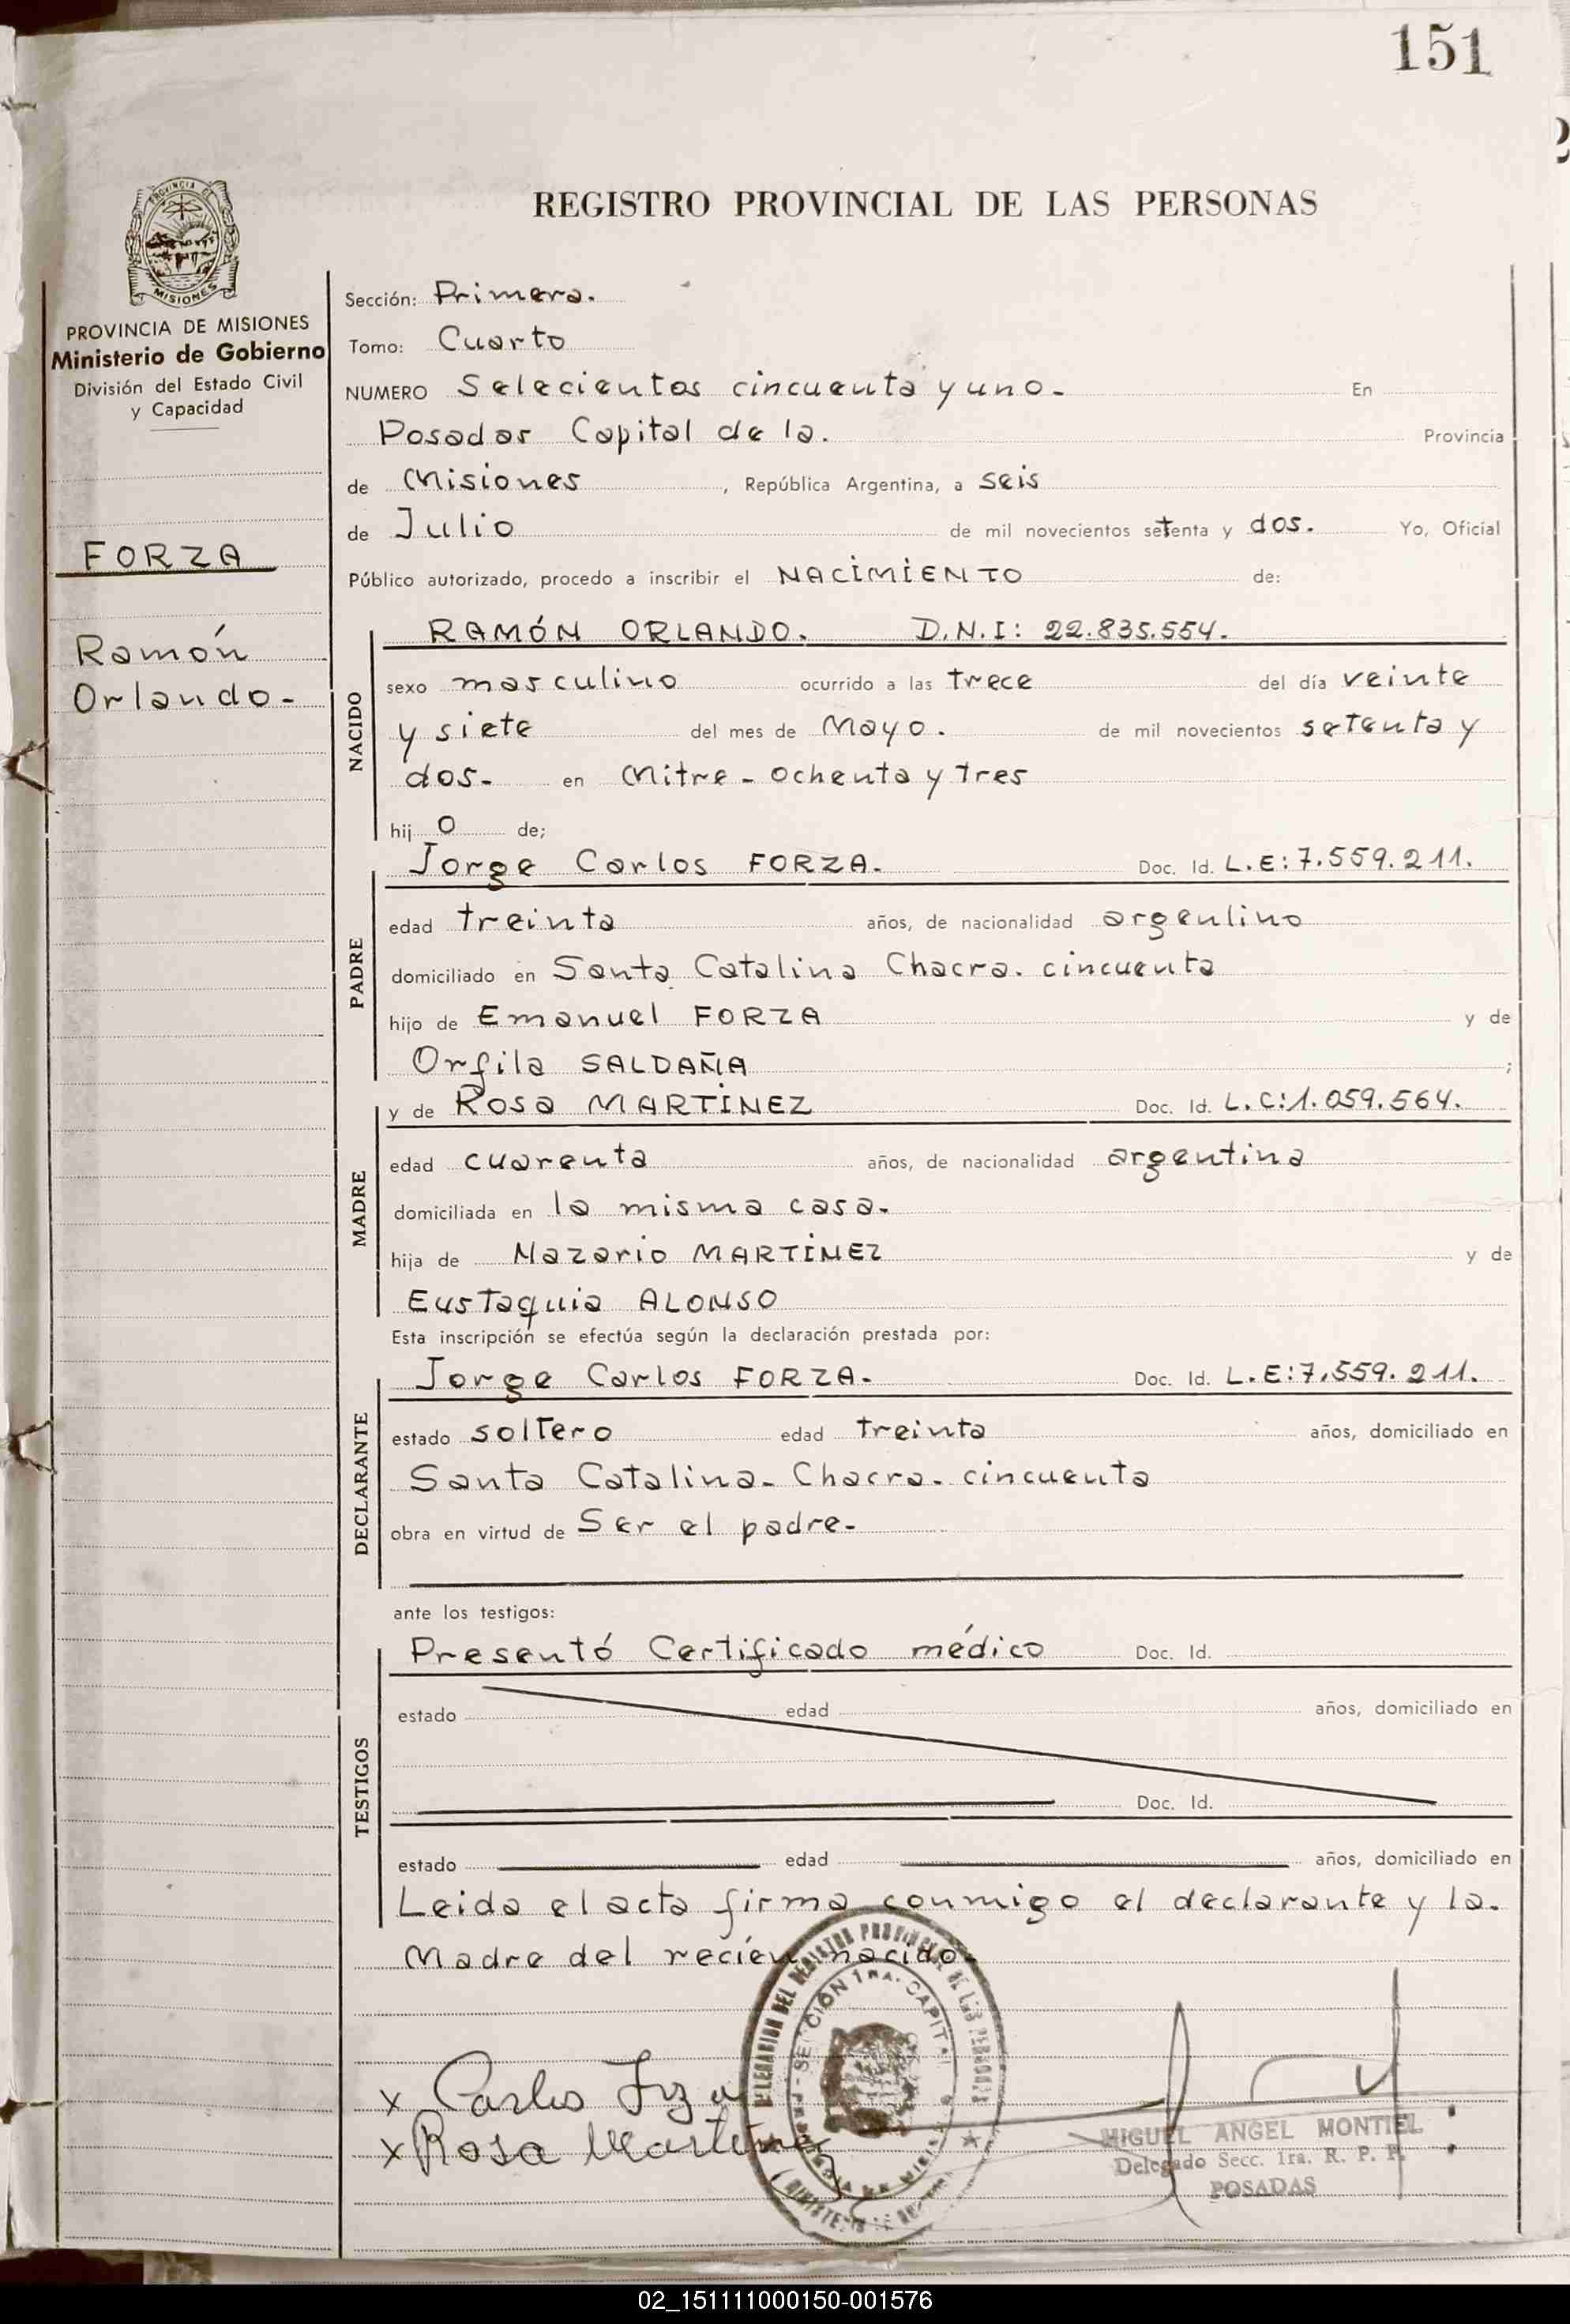 151
REGISTRO PROVINCIAL DE LAS PERSONAS
PROVINCIA DE MISIONES
MISIONES
PROVINCIA DE MISIONES
Ministerio de Gobierno
División del Estado Civil
y Capacidad
FORZA
Ramón
Orlando-
Sección: Primera.
Tomo: Cuarto
NUMERO Setecientos cincuenta y uno- En
Posadas Capital de la. Provincia
de Misiones, República Argentina, a seis
de Julio de mil novecientos setenta y dos. Yo, Oficial
Público autorizado, procedo a inscribir el NACIMIENTO de:
NACIDO
RAMÓN ORLANDO. D.N.I: 22.835.554.
sexo masculino ocurrido a las trece del día veinte
y siete del mes de Mayo. de mil novecientos setenta y
dos- en Mitre - Ochenta y Tres
hij o de;
PADRE
Jorge Carlos FORZA- Doc. Id. L.E:7.559.211.
edad treinta años, de nacionalidad argentino
domiciliado en Santa Catalina Chacra. cincuenta
hijo de Emanuel FORZA y de
Orfila SALDAÑA ;
MADRE
y de Rosa MARTÍNEZ Doc. Id. L.C:1.059.564.
edad cuarenta años, de nacionalidad argentina
domiciliada en la misma casa-
hija de Nazario MARTÍNEZ y de
Eustaquia ALONSO
Esta inscripción se efectúa según la declaración prestada por:
DECLARANTE
Jorge Carlos FORZA- Doc. Id. L.E:7.559.211.
estado soltero edad treinta años, domiciliado en
Santa Catalina- Chacra- cincuenta
obra en virtud de Ser el padre-
ante los testigos:
TESTIGOS
Presentó Certificado médico Doc. Id.
estado edad años, domiciliado en
Doc. Id.
estado edad años, domiciliado en
Leida el acta firma conmigo el declarante y la.
Madre del recién nacido-
x Carlos Forza
x Rosa Martínez
SECCIÓN 1RA. CAPITAL
MIGUEL ANGEL MONTIEL
Delegado Secc. 1ra. R. P. P.
POSADAS
02_151111000150-001576